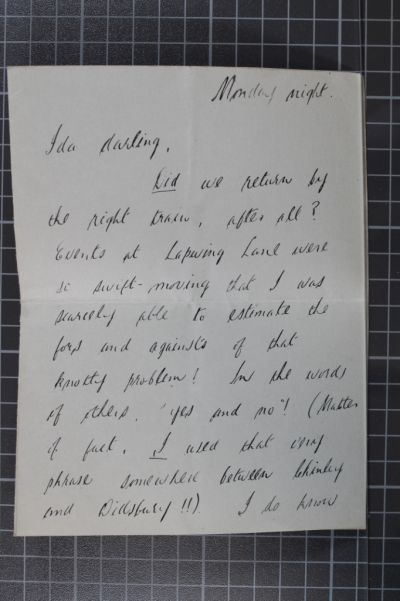 Monday night.
Ida darling,
Did we return by
the right train, after all?
Events at Lapwing Lane were
so swift-moving that I was
scarcely able to estimate the
fors and againsts of that
knotty problem! In the words
of others, "yes and no"! (Matter
of fact, I used that very
phrase somewhere between Chinley
and Didsbury!!) I do know